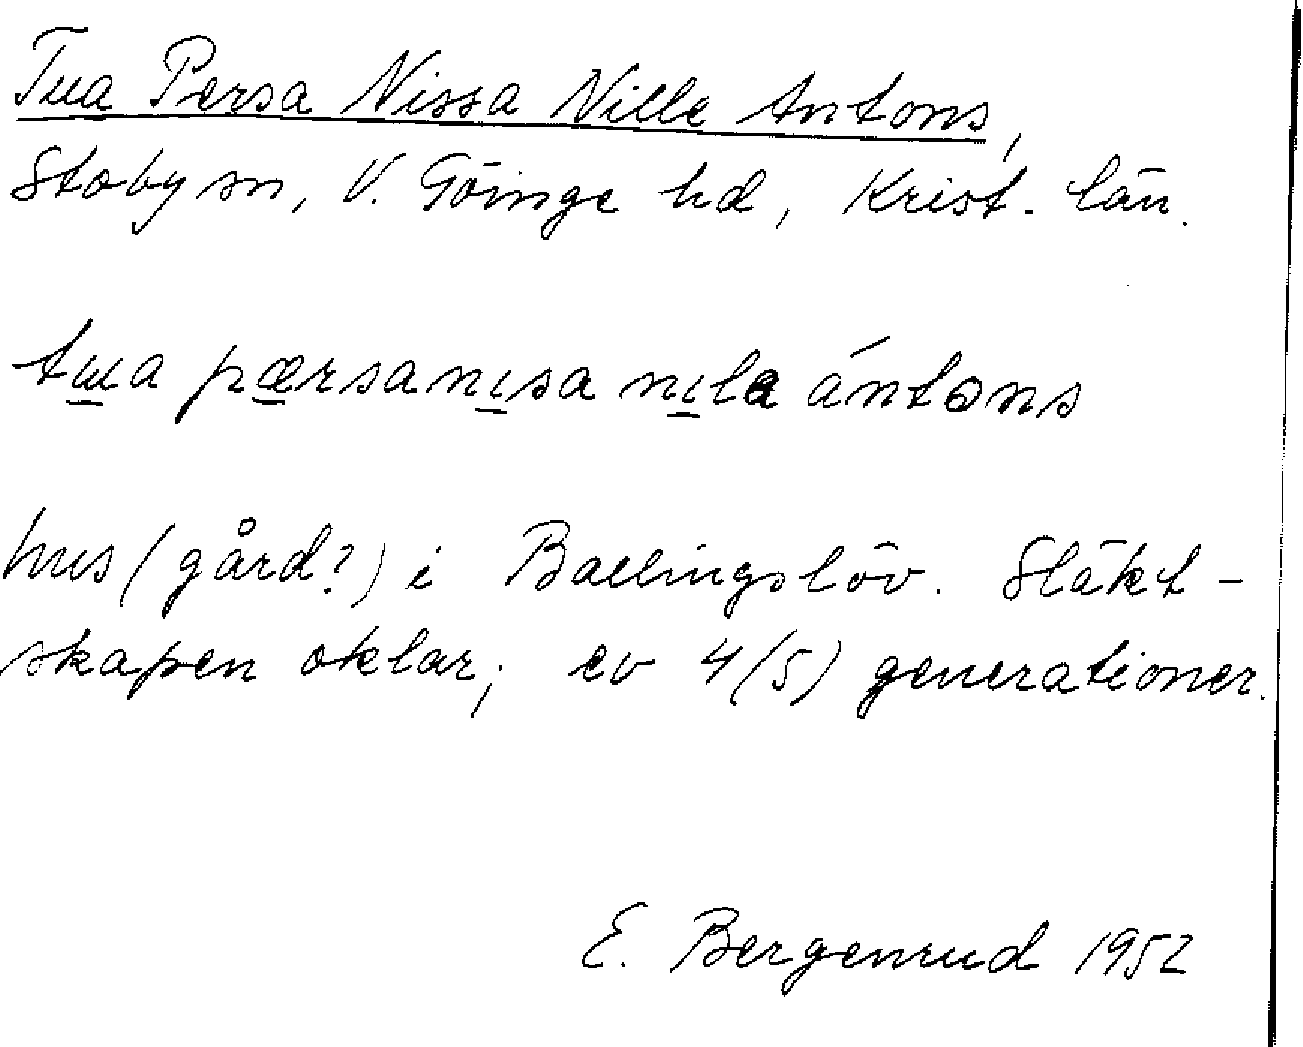 Tua Persa Nissa Nille Antons,
Stoby sn, V. Göinge hd, Krist. län.
tɯa pærsanɩsa nɩlа ántons
hus (gård?) i Ballingslöv. Släkt-
skapen oklar; ev 4(5) generationer.
E. Bergenrud 1952